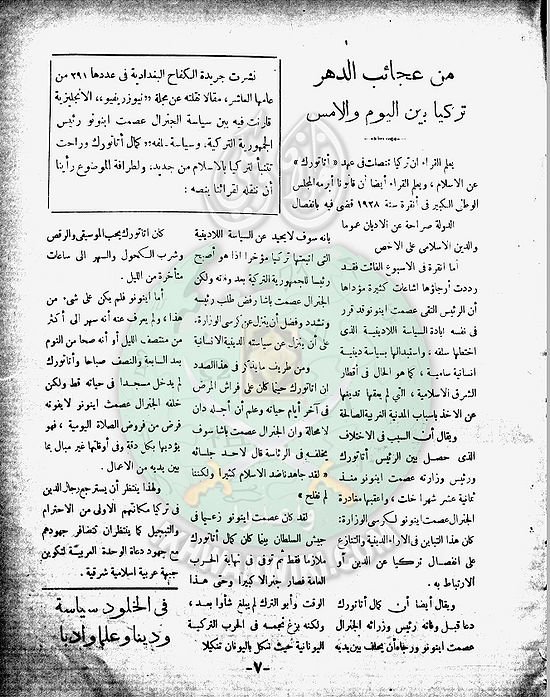 من عجائب الدهر
تركيا بين اليوم والامس
نشرت جريدة الكفاح البغدادية فى عددها ٣٩١ من
عامها العاشر، مقالا نقلته عن مجلة «نيوزريفيو»، الانجليزية
قارنت فيه بين سياسة الجنرال عصمت اينونو رئيس
الجمهورية التركية، وسياسة سلفه، كمال أتاتورك وراحت
تتنبأ لتركيا بالاسلام من جديد، ولطرافة الموضوع رأينا
أن ننقله لقرائنا بنصه :
يعلم القراء ان تركيا تنصلت فى عهد « أتاتورك »
عن الاسلام ، ويعلم القراء أيضا أن قانونا أبرمه المجلس
الوطنى الكبير فى أنقرة سنة ١٩٢٨ قضى فيه بانفصال
الدولة صراحة عن الاديان عموما
والدين الاسلامى على الاخص
أما انقرة فى الاسبوع الفائت فقد
رددت أرجاؤها اشاعات كثيرة مؤداها
أن الرئيس التقى عصمت اينونو قد قرر
فى نفسه ابادة السياسة اللادينية الذى
اختطها سلفه ، واستبدالها بسياسة دينية
انسانية سامية ، كما هو الحال فى أقطار
الشرق الاسلامية ، التى لم يعقها تدينها
عن الاخذ بأسباب المدنية الغربية الصالحة
ويقال أن السبب فى الاختلاف
الذى حصل بين الرئيس أتاتورك
ورئيس وزارته عصمت اينونو منذ
ثمانية عشر شهرا خلت ، وأعقبها مغادرة
الجنرال عصمت اينونو لكرسى الوزارة:
كان هذا التباين فى الآراء الدينية والتنازع
على انفصال تركيا عن الدين أو
الارتباط به .
ويقال أيضا أن كمال أتاتورك
دعا قبل وفاته رئيس وزرائه الجنرال
عصمت اينونو ورجاه أن يحلف بين يديه
بانه سوف لا يحيد عن السياسة اللادينية
التى اتبعتها تركيا مؤخرا اذا هو أصبح
رئيسا للجمهورية التركية بعد وفاته ولكن
الجنرال عصمت باشا رفض طلب رئيسه
وتشدد وفضل أن ينزل عن كرسى الوزارة.
على أن ينزل عن سياسته الدينية الانسانية
ومن طريف ما يذكر فى هذا الصدد
ان اتاتورك حينما كان على فراش المرض
فى آخر أيام حياته وعلم أن أجله دان
لا محالة وان الجنرال عصمت باشا سوف
يخلفه فى الرئاسة قال لاحد جلسائه
« لقد جاهدنا ضد الاسلام كثيرا ولكننا
لم نفلح »
لقد كان عصمت اينونو زعيما فى
جيش السلطان بينما كان كمال أتاتورك
ملازما فقط ثم توفى فى نهاية الحرب
العامة فصار جنرالا كبيرا وحتى هذا
الوقت وأبو الترك لم يبلغ شأوا بعد ،
ولكنه بزغ نجمه فى الحرب التركية
اليونانية حيث نكل باليونان تنكيلا
كان اتاتورك يحب الموسيقى والرقص
وشرب الكحول والسهر الى ساعات
متأخرة من الليل .
أما اينونو فلم يكن على شىء من
هذا ، ولم يعرف عنه أنه سهر الى أكثر
من منتصف الليل أو أنه صحا من النوم
بعد السابعة والنصف صباحا وأتاتورك
لم يدخل مسجدا فى حياته قط ولكن
خلفه الجنرال عصمت اينونو لايفوته
فرض من فروض الصلاة اليومية ، فهو
يؤديها بكل دقة وفى أوقاتها غير مبال بما
بين يديه من الاعمال .
ولهذا ينتظر أن يسترجع رجال الدين
فى تركيا مكانتهم الاولى من الاحترام
والتبجيل كما ينتظر ان تتضافر جهودهم
مع جهود دعاة الوحدة العربية لتكوين
جبهة عربية اسلامية شرقية .
فى الخلود سياسة
ودينا وعلما وأدبا
-٧-